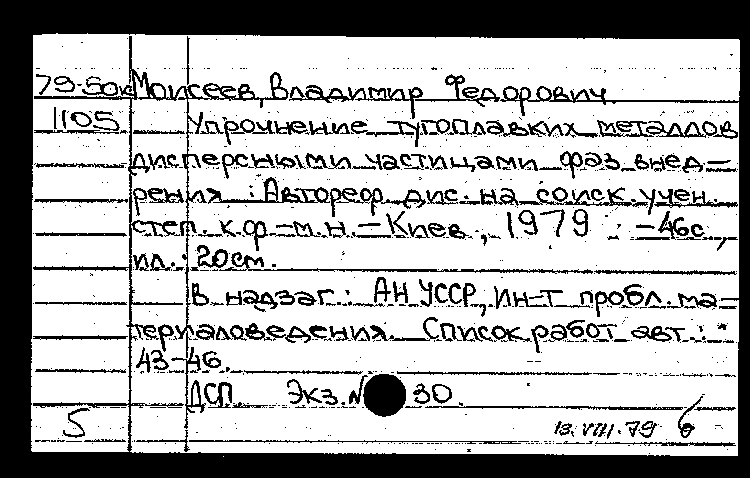 79-50к Моисеев, Владимир Федорович.
1105 Упрочнение тугоплавких металлов
дисперсными частицами фаз внед-
рения : Автореф. дис. на соиск. учен.
степ. к.ф.-м.н. - Киев, 1979. - 46с.,
ил.; 20см.
В надзаг.: АН УССР, Ин-т пробл. ма-
териаловедения. Список работ авт.: с.
43-46.
ДСП. Экз.№ 30.
5 13.VIII.79